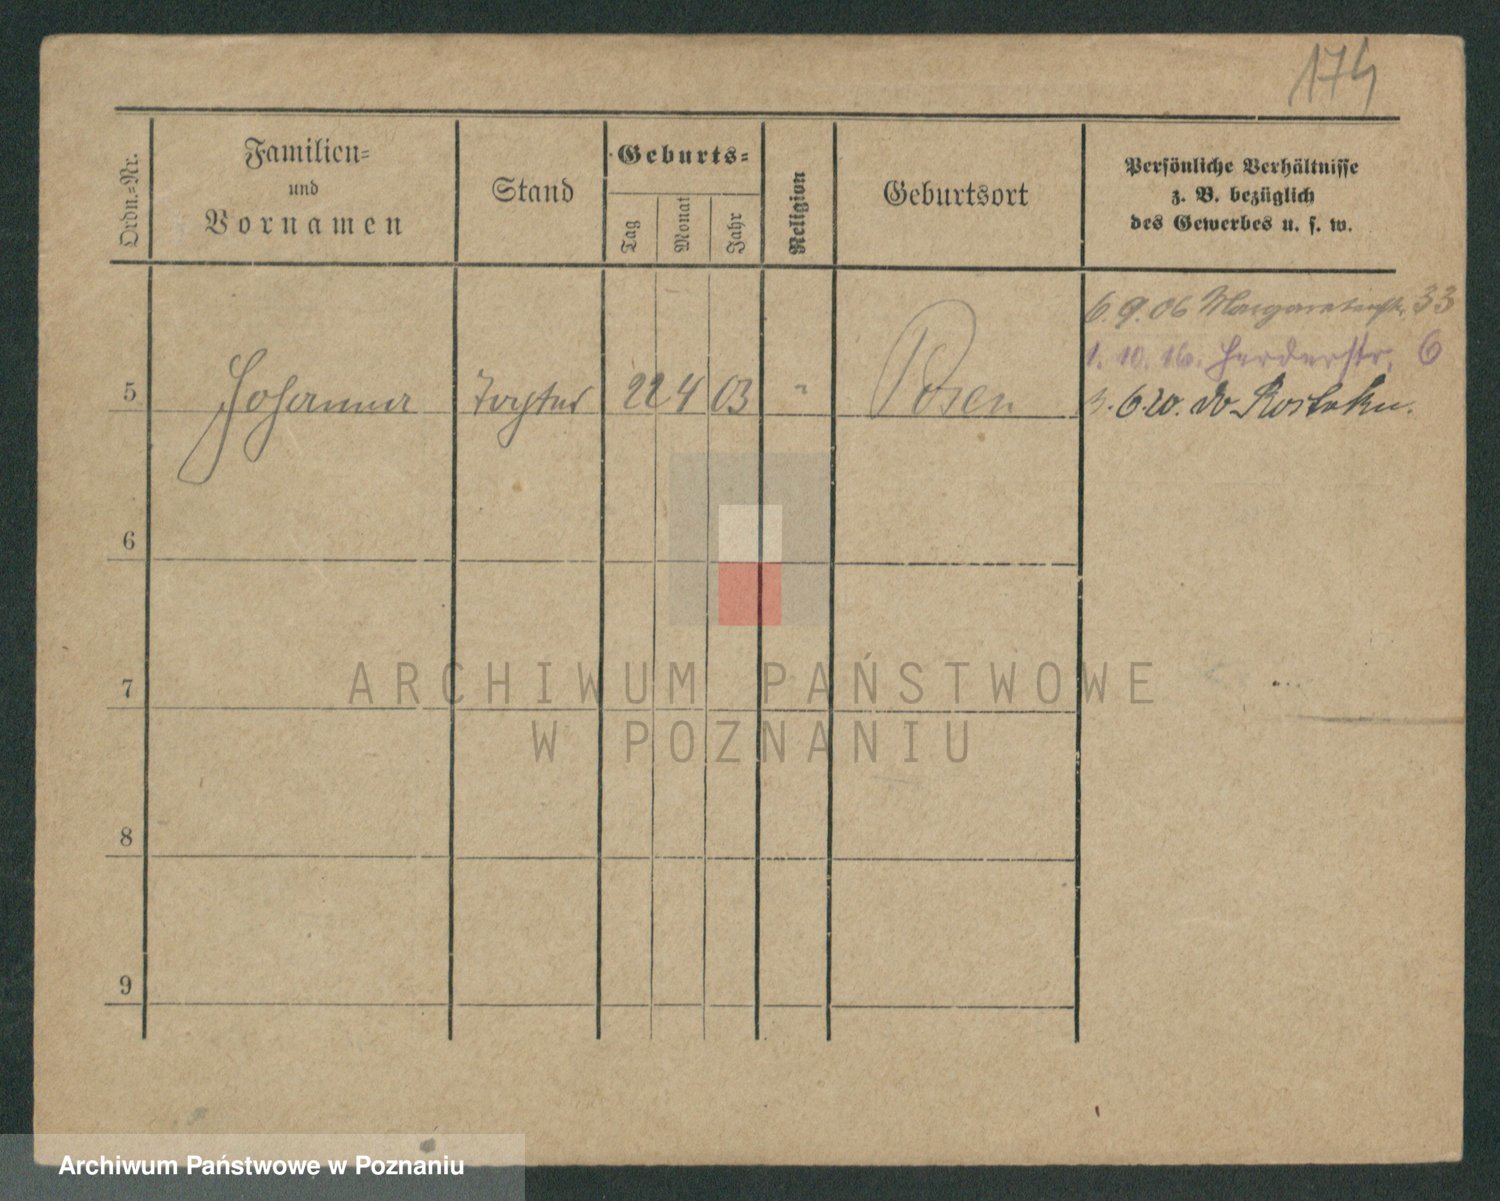 174
Ordn.-Nr.
Familien-
und
Vornamen
Stand
Geburts-
Tag
Monat
Jahr
Religion
Geburtsort
Persönliche Verhältnisse
z. B. bezüglich
des Gewerbes u. s. w.
6.9.06 Margaretenstr. 33
1. 10. 16. Herderstr. 6
5 Johanna Tochter 22 4 03 " Posen
6.20. do Rostoku.
6
7
ARCHIWUM PAŃSTWOWE
W POZNANIU
8
9
Archiwum Państwowe w Poznaniu